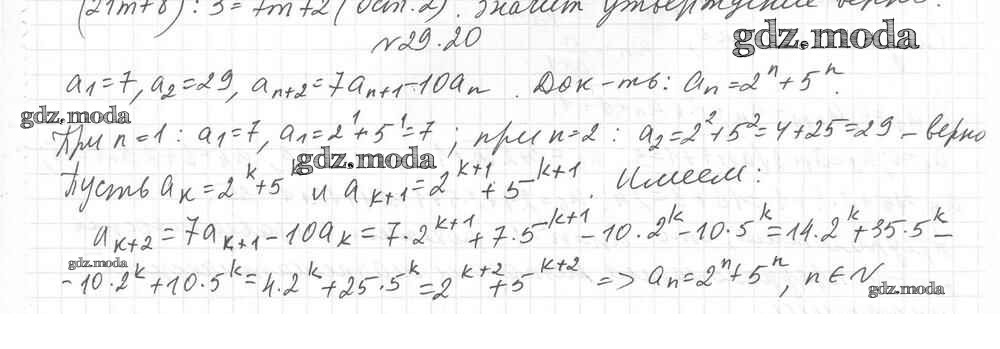 (21m+8) : 3 = 7m+2 (ост. 2). Значит утверждение верно.
N29.20
gdz.moda
a₁=7, a₂=29, aₙ₊₂=7aₙ₊₁-10aₙ. Док-ть: aₙ=2ⁿ+5ⁿ.
gdz.moda
При n=1: a₁=7, a₁=2¹+5¹=7; при n=2: a₂=2²+5²=4+25=29 – верно
gdz.moda
Пусть aₖ=2ᵏ+5ᵏ и aₖ₊₁=2ᵏ⁺¹+5ᵏ⁺¹. Имеем:
aₖ₊₂=7aₖ₊₁-10aₖ=7·2ᵏ⁺¹+7·5ᵏ⁺¹-10·2ᵏ-10·5ᵏ=14·2ᵏ+35·5ᵏ-
gdz.moda
-10·2ᵏ+10·5ᵏ=4·2ᵏ+25·5ᵏ=2ᵏ⁺²+5ᵏ⁺² => aₙ=2ⁿ+5ⁿ, n∈N
gdz.moda